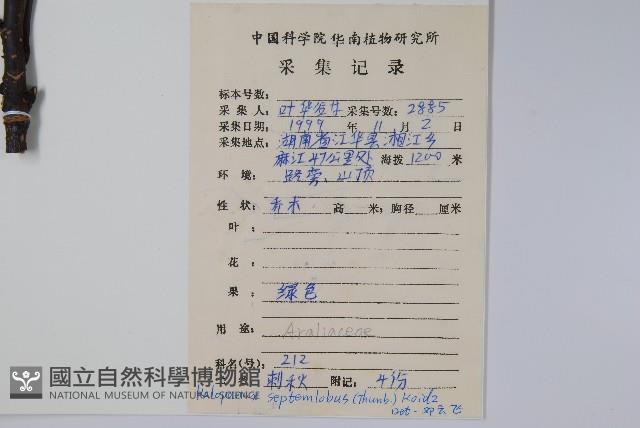 中国科学院华南植物研究所
采集记录
标本号数:
采集人:叶华谷 采集号数:2885
采集日期:1999年11月2日
采集地点:湖南省江华县湘江乡
麻江47公里处 海拨1200米
环境:路旁、山顶
性状:乔木 高 米;胸径 厘米
叶:
花:
果:绿色
用途:Araliaceae
科名(号):212
刺秋 附记:4份
Kalopanax septemlobus (Thunb.) Koidz
Det.
國立自然科學博物館
NATIONAL MUSEUM OF NATURAL SCIENCE